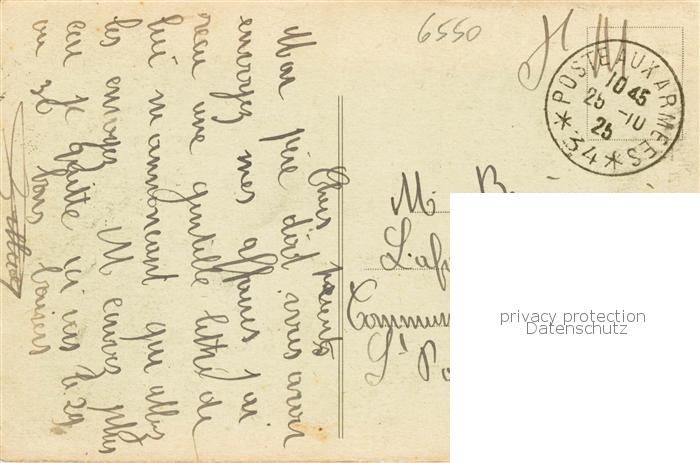 6550
POSTE AUX ARMEES
10 45
25 -10
25
* 34 *
Chers parents
Mon père doit vous avoir
envoyez mes affaires j'ai
recu une gentille lettre de
lui m'annoncant qu'allez
les envoyez M envoz plus
car je quitte ici vers le 29
ou 30 bons baisers
M. B
L'af
Commun
St Po
privacy protection
Datenschutz